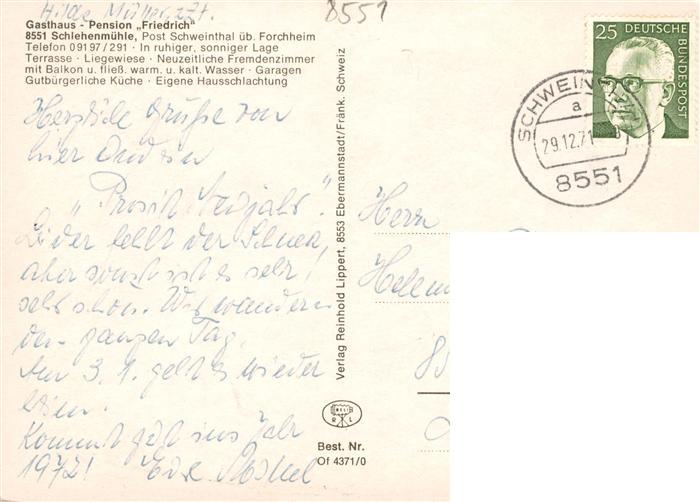 Hilde Müller, zzt.
8551
Gasthaus - Pension „Friedrich"
8551 Schlehenmühle, Post Schweinthal üb. Forchheim
Telefon 09197/291 · In ruhiger, sonniger Lage
Terrasse · Liegewiese · Neuzeitliche Fremdenzimmer
mit Balkon u. fließ. warm. u. kalt. Wasser · Garagen
Gutbürgerliche Küche · Eigene Hausschlachtung
Herzliche Grüße von
hier und ein
„Prosit Neujahr".
Leider fehlt der Schnee,
aber sonst ist es sehr!
sehr schön. Wir wandern
den ganzen Tag.
Am 3.1. geht es wieder
heim.
Kommt gut ins Jahr
1972!
Verlag Reinhold Lippert, 8553 Ebermannstadt/Fränk. Schweiz
R L
Best. Nr.
Of 4371/0
25 DEUTSCHE
BUNDESPOST
SCHWEIN
a
29.12.71
8551
Herrn